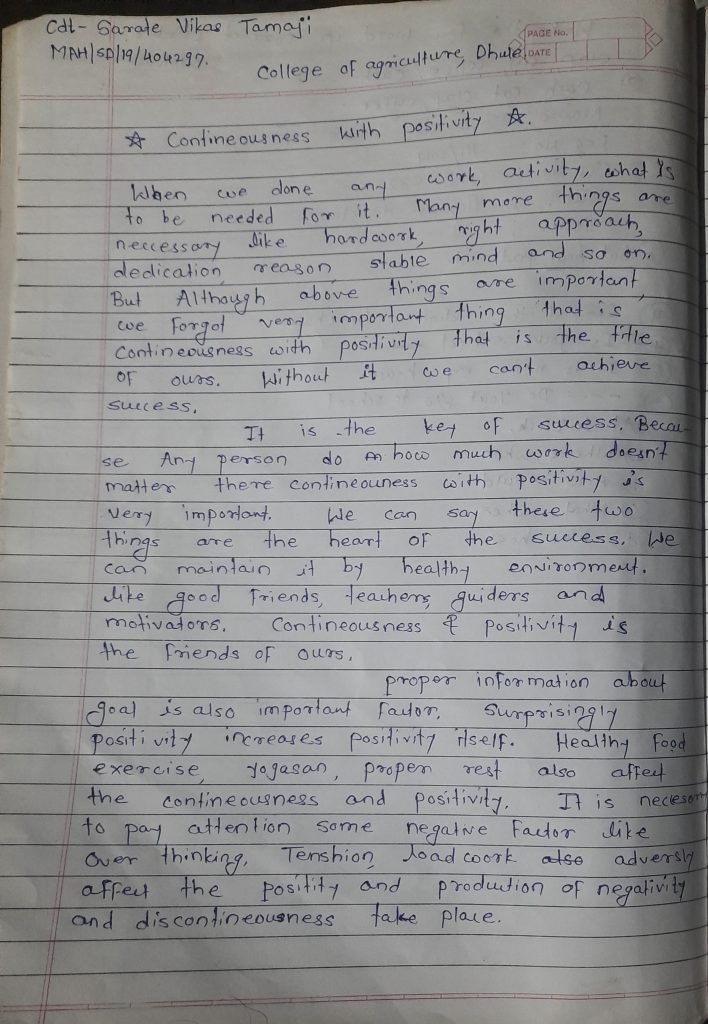 Cdt- Sarate Vikas Tamaji
MAH/SD/19/404297.
PAGE No.
DATE
College of agriculture, Dhule.
☆ Contineousness with positivity ☆.
When we done any work, activity, what is
to be needed for it. Many more things are
neccessary like hardwork, right approach,
dedication, reason stable mind and so on.
But Although above things are important,
we forgot very important thing that is
Contineousness with positivity that is the title
of ours. Without it we can't achieve
success.
It is the key of success. Becau-
se Any person do how much work doesn't
matter there contineouness with positivity is
very important. We can say these two
things are the heart of the success. We
can maintain it by healthy environment.
like good friends, teachers, guiders and
motivators. Contineousness & positivity is
the friends of ours.
proper information about
goal is also important factor. Surprisingly
positivity increases positivity itself. Healthy food
exercise, yogasan, proper rest also affect
the contineousness and positivity. It is neccesory
to pay attention some negative factor like
over thinking, Tenshion, load work also adversly
affect the positity and production of negativity
and discontineousness take place.